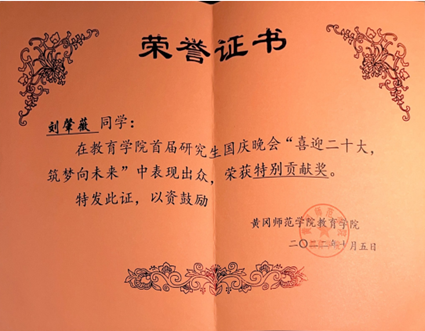 荣誉证书
刘肇薇 同学：
在教育学院首届研究生国庆晚会“喜迎二十大，
筑梦向未来”中表现出众，荣获特别贡献奖。
特发此证，以资鼓励
黄冈师范学院教育学院
二〇二二年十月五日